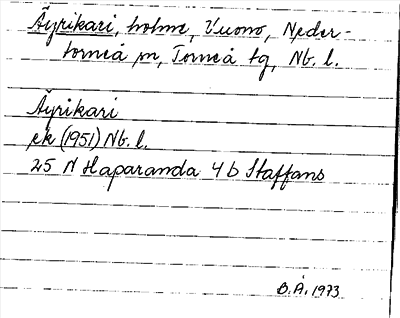 Äyrikari, holme, Vuono, Neder-
torneå sn, Torneå tg, Nb. l.
Äyrikari
ek (1951) Nb. l.
25 N Haparanda 4 b Staffans
B.Å. 1973